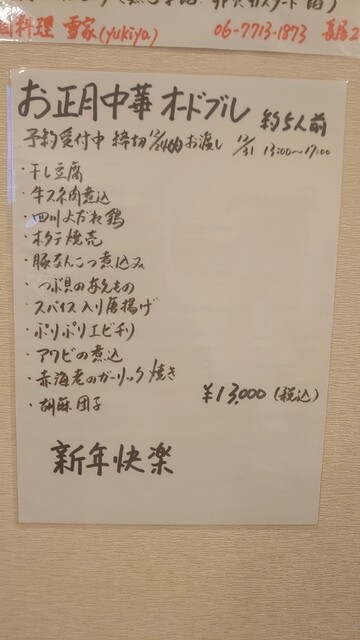 国料理 雪家(yukiya) 06-7713-1873 長居2
お正月中華オードブル 約5人前
予約受付中 締切12/24(火)お渡し 12/31 13:00〜17:00
・干し豆腐
・牛スネ肉煮込
・四川よだれ鶏
・ホタテ焼売
・豚なんこつ煮込み
・つぶ貝のあえもの
・スパイス入り唐揚げ
・ポリポリエビチリ
・アワビの煮込
・赤海老のガーリック焼き
・胡麻団子
¥13,000(税込)
新年快楽